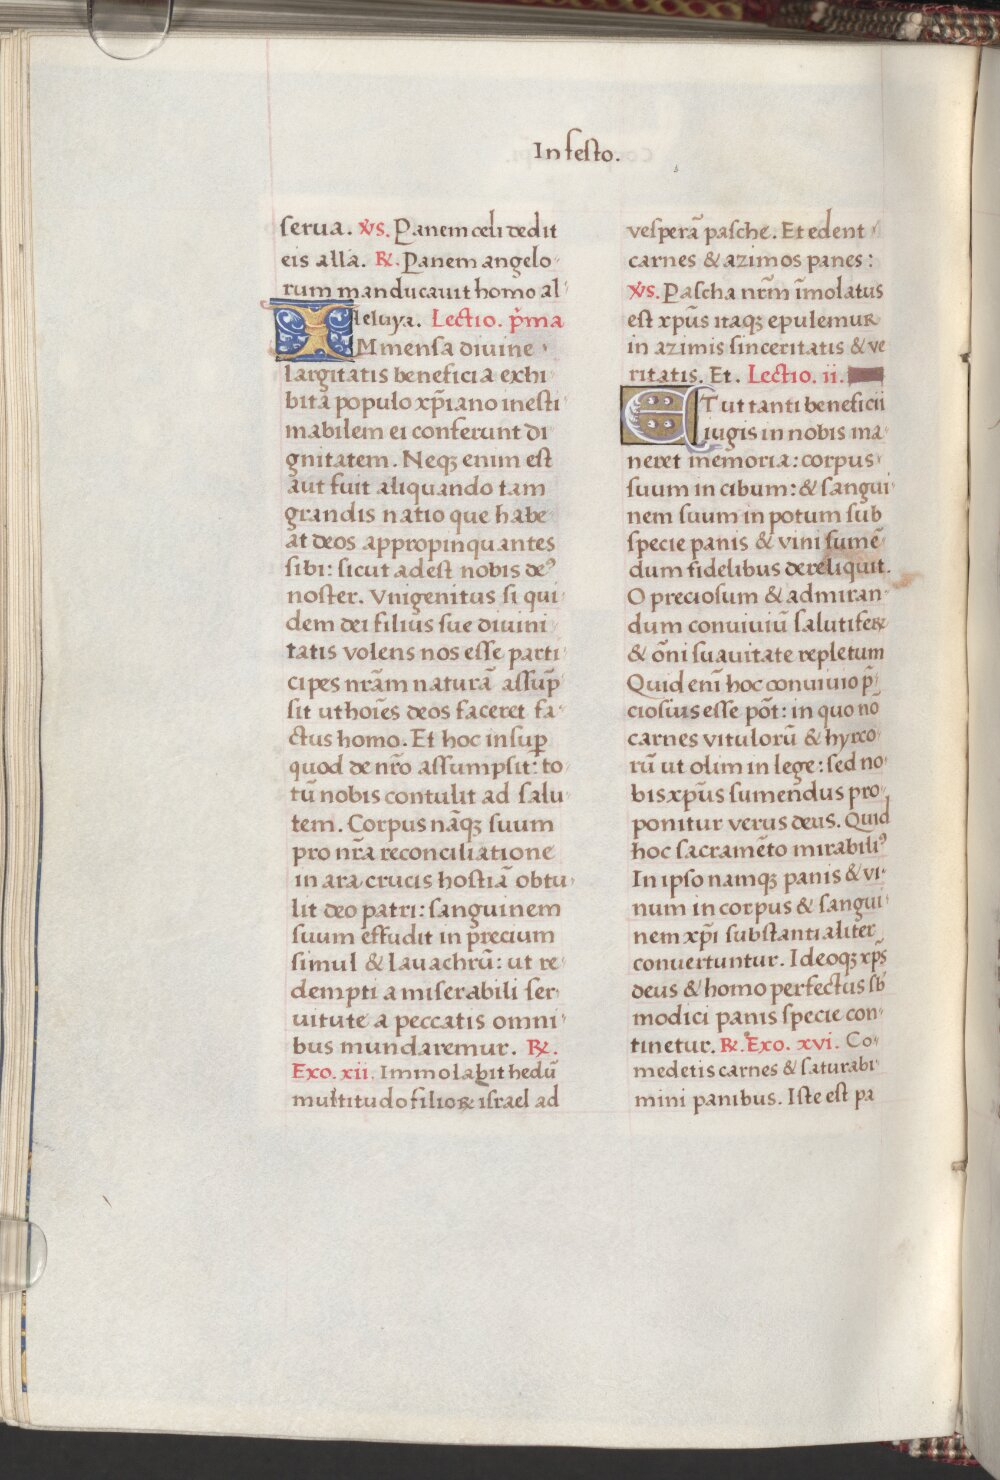 In festo.
serua. v̇s. Panem celi dedit
eis alła. ℟. Panem angelo
rum manducauit homo al
leluya. Lectio. p̃ma
IMmensa diuine
largitatis beneficia exhi
bita populo xp̃iano inesti
mabilem ei conferunt di
gnitatem. Neqꝫ enim est
aut fuit aliquando tam
grandis natio que habe
at deos appropinquantes
sibi: sicut adest nobis deꝰ
noster. Vnigenitus si qui
dem dei filius sue diuini
tatis volens nos esse parti
cipes nr̃am naturã assũp
sit ut hoĩes deos faceret fa
ctus homo. Et hoc insuꝑ
quod de nr̃o assumpsit: to
tũ nobis contulit ad salu
tem. Corpus nãqꝫ suum
pro nr̃a reconciliatione
in ara crucis hostiã obtu
lit deo patri: sanguinem
suum effudit in precium
simul & lauachrũ: ut re
dempti a miserabili ser
uitute a peccatis omni
bus mundaremur. ℟.
Exo. xii. Immolabit hedũ
multitudo filioꝝ israel ad
vesperã pasche. Et edent
carnes & azimos panes:
v̇s. Pascha nr̃m ĩmolatus
est xpũs itaqꝫ epulemur
in azimis sinceritatis & ve
ritatis. Et. Lectio. ii.
ET ut tanti beneficii
iugis in nobis ma
neret memoria: corpus
suum in cibum: & sangui
nem suum in potum sub
specie panis & vini sumẽ
dum fidelibus dereliquit.
O preciosum & admiran
dum conuiuiũ salutifeꝝ
& õni suauitate repletum
Quid enĩ hoc conuiuio p̃
ciosius esse põt: in quo nõ
carnes vitulorũ & hyrco
rũ ut olim in lege: sed no
bis xpũs sumendus pro
ponitur verus deus. Quid
hoc sacramẽto mirabiliꝰ
In ipso namqꝫ panis & vi
num in corpus & sangui
nem xpĩ substantialiter
conuertuntur. Ideoqꝫ xp̃s
deus & homo perfectus sb̃
modici panis specie con
tinetur. ℟. Exo. xvi. Co
medetis carnes & saturabi
mini panibus. Iste est pa